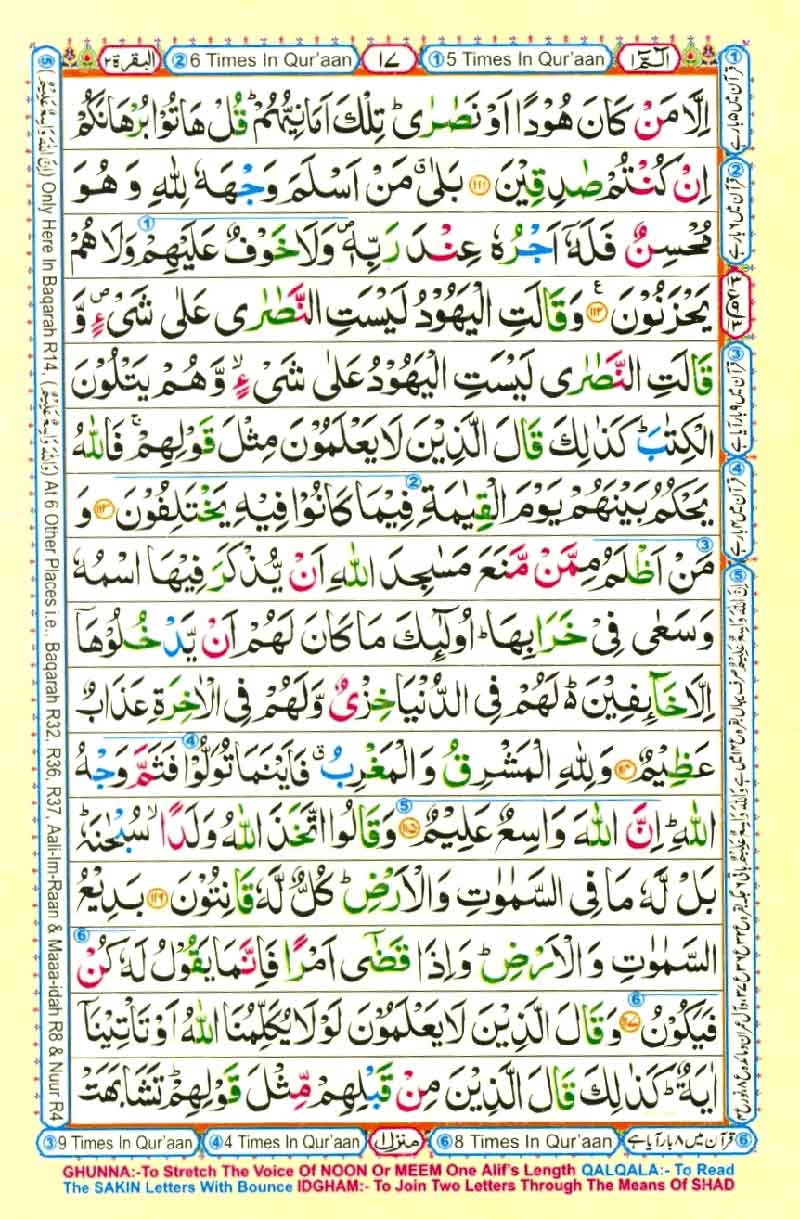 الٓمّٓ ١ ① 5 Times In Qur'aan ١٧ ② 6 Times In Qur'aan البقرة ٢
اِلَّا مَنْ كَانَ هُوْدًا اَوْ نَصٰرٰى ؕ تِلْكَ اَمَانِيُّهُمْ ؕ قُلْ هَاتُوْا بُرْهَانَكُمْ
اِنْ كُنْتُمْ صٰدِقِيْنَ ﴿۱۱۱﴾ بَلٰى ۗ مَنْ اَسْلَمَ وَجْهَهٗ لِلّٰهِ وَ هُوَ
مُحْسِنٌ فَلَهٗۤ اَجْرُهٗ عِنْدَ رَبِّهٖ ۪ وَلَا خَوْفٌ عَلَيْهِمْ وَلَا هُمْ ①
يَحْزَنُوْنَ ﴿۱۱۲﴾ ع وَقَالَتِ الْيَهُوْدُ لَيْسَتِ النَّصٰرٰى عَلٰى شَىْءٍ ۪ وَّ
قَالَتِ النَّصٰرٰى لَيْسَتِ الْيَهُوْدُ عَلٰى شَىْءٍ ۙ وَّهُمْ يَتْلُوْنَ
الْكِتٰبَ ؕ كَذٰلِكَ قَالَ الَّذِيْنَ لَا يَعْلَمُوْنَ مِثْلَ قَوْلِهِمْ ۚ فَاللّٰهُ
يَحْكُمُ بَيْنَهُمْ يَوْمَ الْقِيٰمَةِ فِيْمَا كَانُوْا فِيْهِ يَخْتَلِفُوْنَ ﴿۱۱۳﴾ وَ ②
مَنْ اَظْلَمُ مِمَّنْ مَّنَعَ مَسٰجِدَ اللّٰهِ اَنْ يُّذْكَرَ فِيْهَا اسْمُهٗ ③
وَسَعٰى فِىْ خَرَابِهَا ؕ اُولٰٓئِكَ مَا كَانَ لَهُمْ اَنْ يَّدْخُلُوْهَاۤ
اِلَّا خَآئِفِيْنَ ؕ لَهُمْ فِى الدُّنْيَا خِزْىٌ وَّلَهُمْ فِى الْاٰخِرَةِ عَذَابٌ
عَظِيْمٌ ﴿۱۱۴﴾ وَلِلّٰهِ الْمَشْرِقُ وَالْمَغْرِبُ ۗ فَاَيْنَمَا تُوَلُّوْا فَثَمَّ وَجْهُ ④
اللّٰهِ ؕ اِنَّ اللّٰهَ وَاسِعٌ عَلِيْمٌ ﴿۱۱۵﴾ وَقَالُوا اتَّخَذَ اللّٰهُ وَلَدًا ۙ سُبْحٰنَهٗ ؕ ⑤
بَلْ لَّهٗ مَا فِى السَّمٰوٰتِ وَالْاَرْضِ ؕ كُلٌّ لَّهٗ قٰنِتُوْنَ ﴿۱۱۶﴾ بَدِيْعُ
السَّمٰوٰتِ وَالْاَرْضِ ؕ وَاِذَا قَضٰٓى اَمْرًا فَاِنَّمَا يَقُوْلُ لَهٗ كُنْ ⑥
فَيَكُوْنُ ﴿۱۱۷﴾ وَقَالَ الَّذِيْنَ لَا يَعْلَمُوْنَ لَوْ لَا يُكَلِّمُنَا اللّٰهُ اَوْ تَاْتِيْنَاۤ ⑥
اٰيَةٌ ؕ كَذٰلِكَ قَالَ الَّذِيْنَ مِنْ قَبْلِهِمْ مِّثْلَ قَوْلِهِمْ ؕ تَشَابَهَتْ
⑤ (اِنَّ اللّٰهَ وَاسِعٌ عَلِيْمٌ) Only Here In Baqarah R14, (وَاللّٰهُ وَاسِعٌ عَلِيْمٌ) At 6 Other Places i.e.. Baqarah R32, R36, R37, Aali-Im-Raan & Maaa-idah R8 & Nuur R4
① قرآن میں ۵ بار ہے
② قرآن میں ۶ بار ہے
③ قرآن میں ۹ بار آیا ہے
④ قرآن میں ۴ بار ہے
③ 9 Times In Qur'aan ④ 4 Times In Qur'aan منزل ١ ⑥ 8 Times In Qur'aan ⑥ قرآن میں ٨ بار آیا ہے
GHUNNA:-To Stretch The Voice Of NOON Or MEEM One Alif's Length QALQALA:- To Read
The SAKIN Letters With Bounce IDGHAM:- To Join Two Letters Through The Means Of SHAD